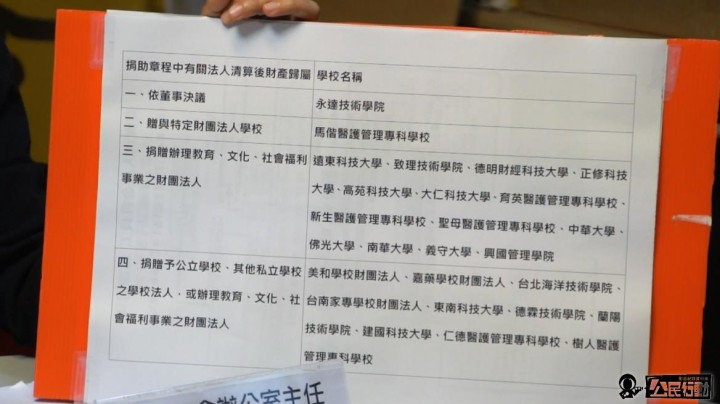 捐助章程中有關法人清算後財產歸屬 學校名稱
一、依董事決議 永達技術學院
二、贈與特定財團法人學校 馬偕醫護管理專科學校
三、捐贈辦理教育、文化、社會福利
事業之財團法人
遠東科技大學、致理技術學院、德明財經科技大學、正修科技
大學、高苑科技大學、大仁科技大學、育英醫護管理專科學校、
新生醫護管理專科學校、聖母醫護管理專科學校、中華大學、
佛光大學、南華大學、義守大學、興國管理學院
四、捐贈予公立學校、其他私立學校
之學校法人，或辦理教育、文化、社
會福利事業之財團法人
美和學校財團法人、嘉藥學校財團法人、台北海洋技術學院、
台南家專學校財團法人、東南科技大學、德霖技術學院、蘭陽
技術學院、建國科技大學、仁德醫護管理專科學校、樹人醫護
管理專科學校
辦公室主任
公民行動